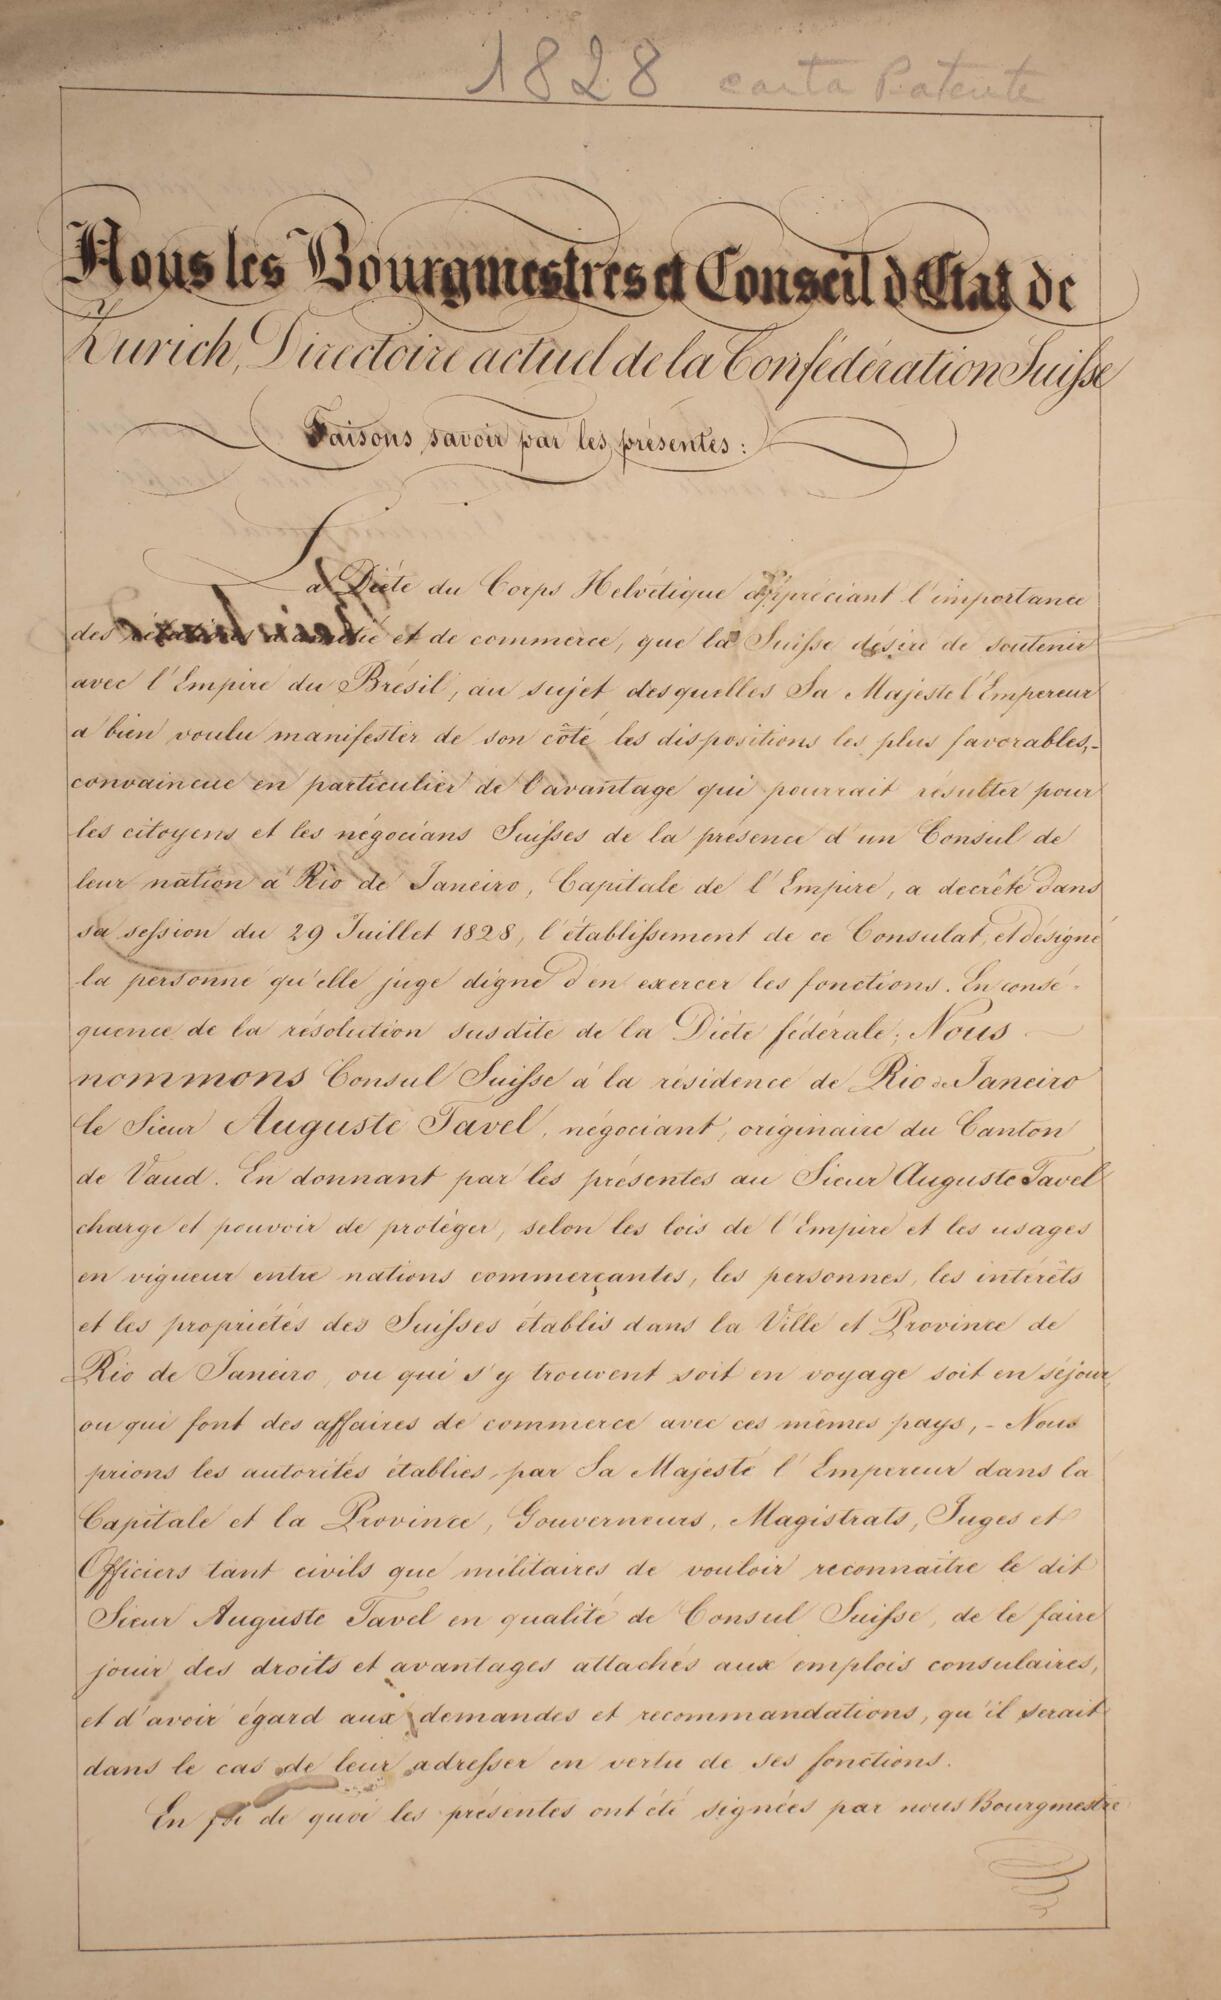 1828 carta Patente
Nous les Bourgmestres et Conseil d'Etat de
Zurich, Directoire actuel de la Confédération Suisse
Faisons savoir par les présentes:
La Diéte du Corps Helvétique appréciant l'importance
des relations d'amitié et de commerce, que la Suisse desire de soutenir
avec l'Empire du Brésil, au sujet desquelles Sa Majesté l'Empereur
a bien voulu manifester de son côté les dispositions les plus favorables,-
convaincue en particulier de l'avantage qui pourrait résulter pour
les citoyens et les négocians Suisses de la présence d'un Consul de
leur nation à Rio de Janeiro, Capitale de l'Empire, a decrêté dans
sa session du 29 Juillet 1828, l'établissement de ce Consulat, et désigné
la personne qu'elle juge digne d'en exercer les fonctions. En consé-
quence de la résolution susdite de la Diéte fédérale; Nous
nommons Consul Suisse à la résidence de Rio de Janeiro
le Sieur Auguste Tavel, négociant, originaire du Canton
de Vaud. En donnant par les présentes au Sieur Auguste Tavel
charge et pouvoir de protéger, selon les lois de l'Empire et les usages
en vigueur entre nations commerçantes, les personnes, les intérêts
et les propriétés des Suisses établis dans la Ville et Province de
Rio de Janeiro, ou qui s'y trouvent soit en voyage soit en séjour,
ou qui font des affaires de commerce avec ces mêmes pays,- Nous
prions les autorités établies, par Sa Majesté l'Empereur dans la
Capitale et la Province, Gouverneurs, Magistrats, Juges et
Officiers tant civils que militaires de vouloir reconnaitre le dit
Sieur Auguste Tavel en qualité de Consul Suisse, de le faire
jouir des droits et avantages attachés aux emplois consulaires,
et d'avoir égard aux demandes et recommandations, qu'il serait
dans le cas de leur adresser en vertu de ses fonctions.
En foi de quoi les présentes ont été signées par nous Bourgmestre